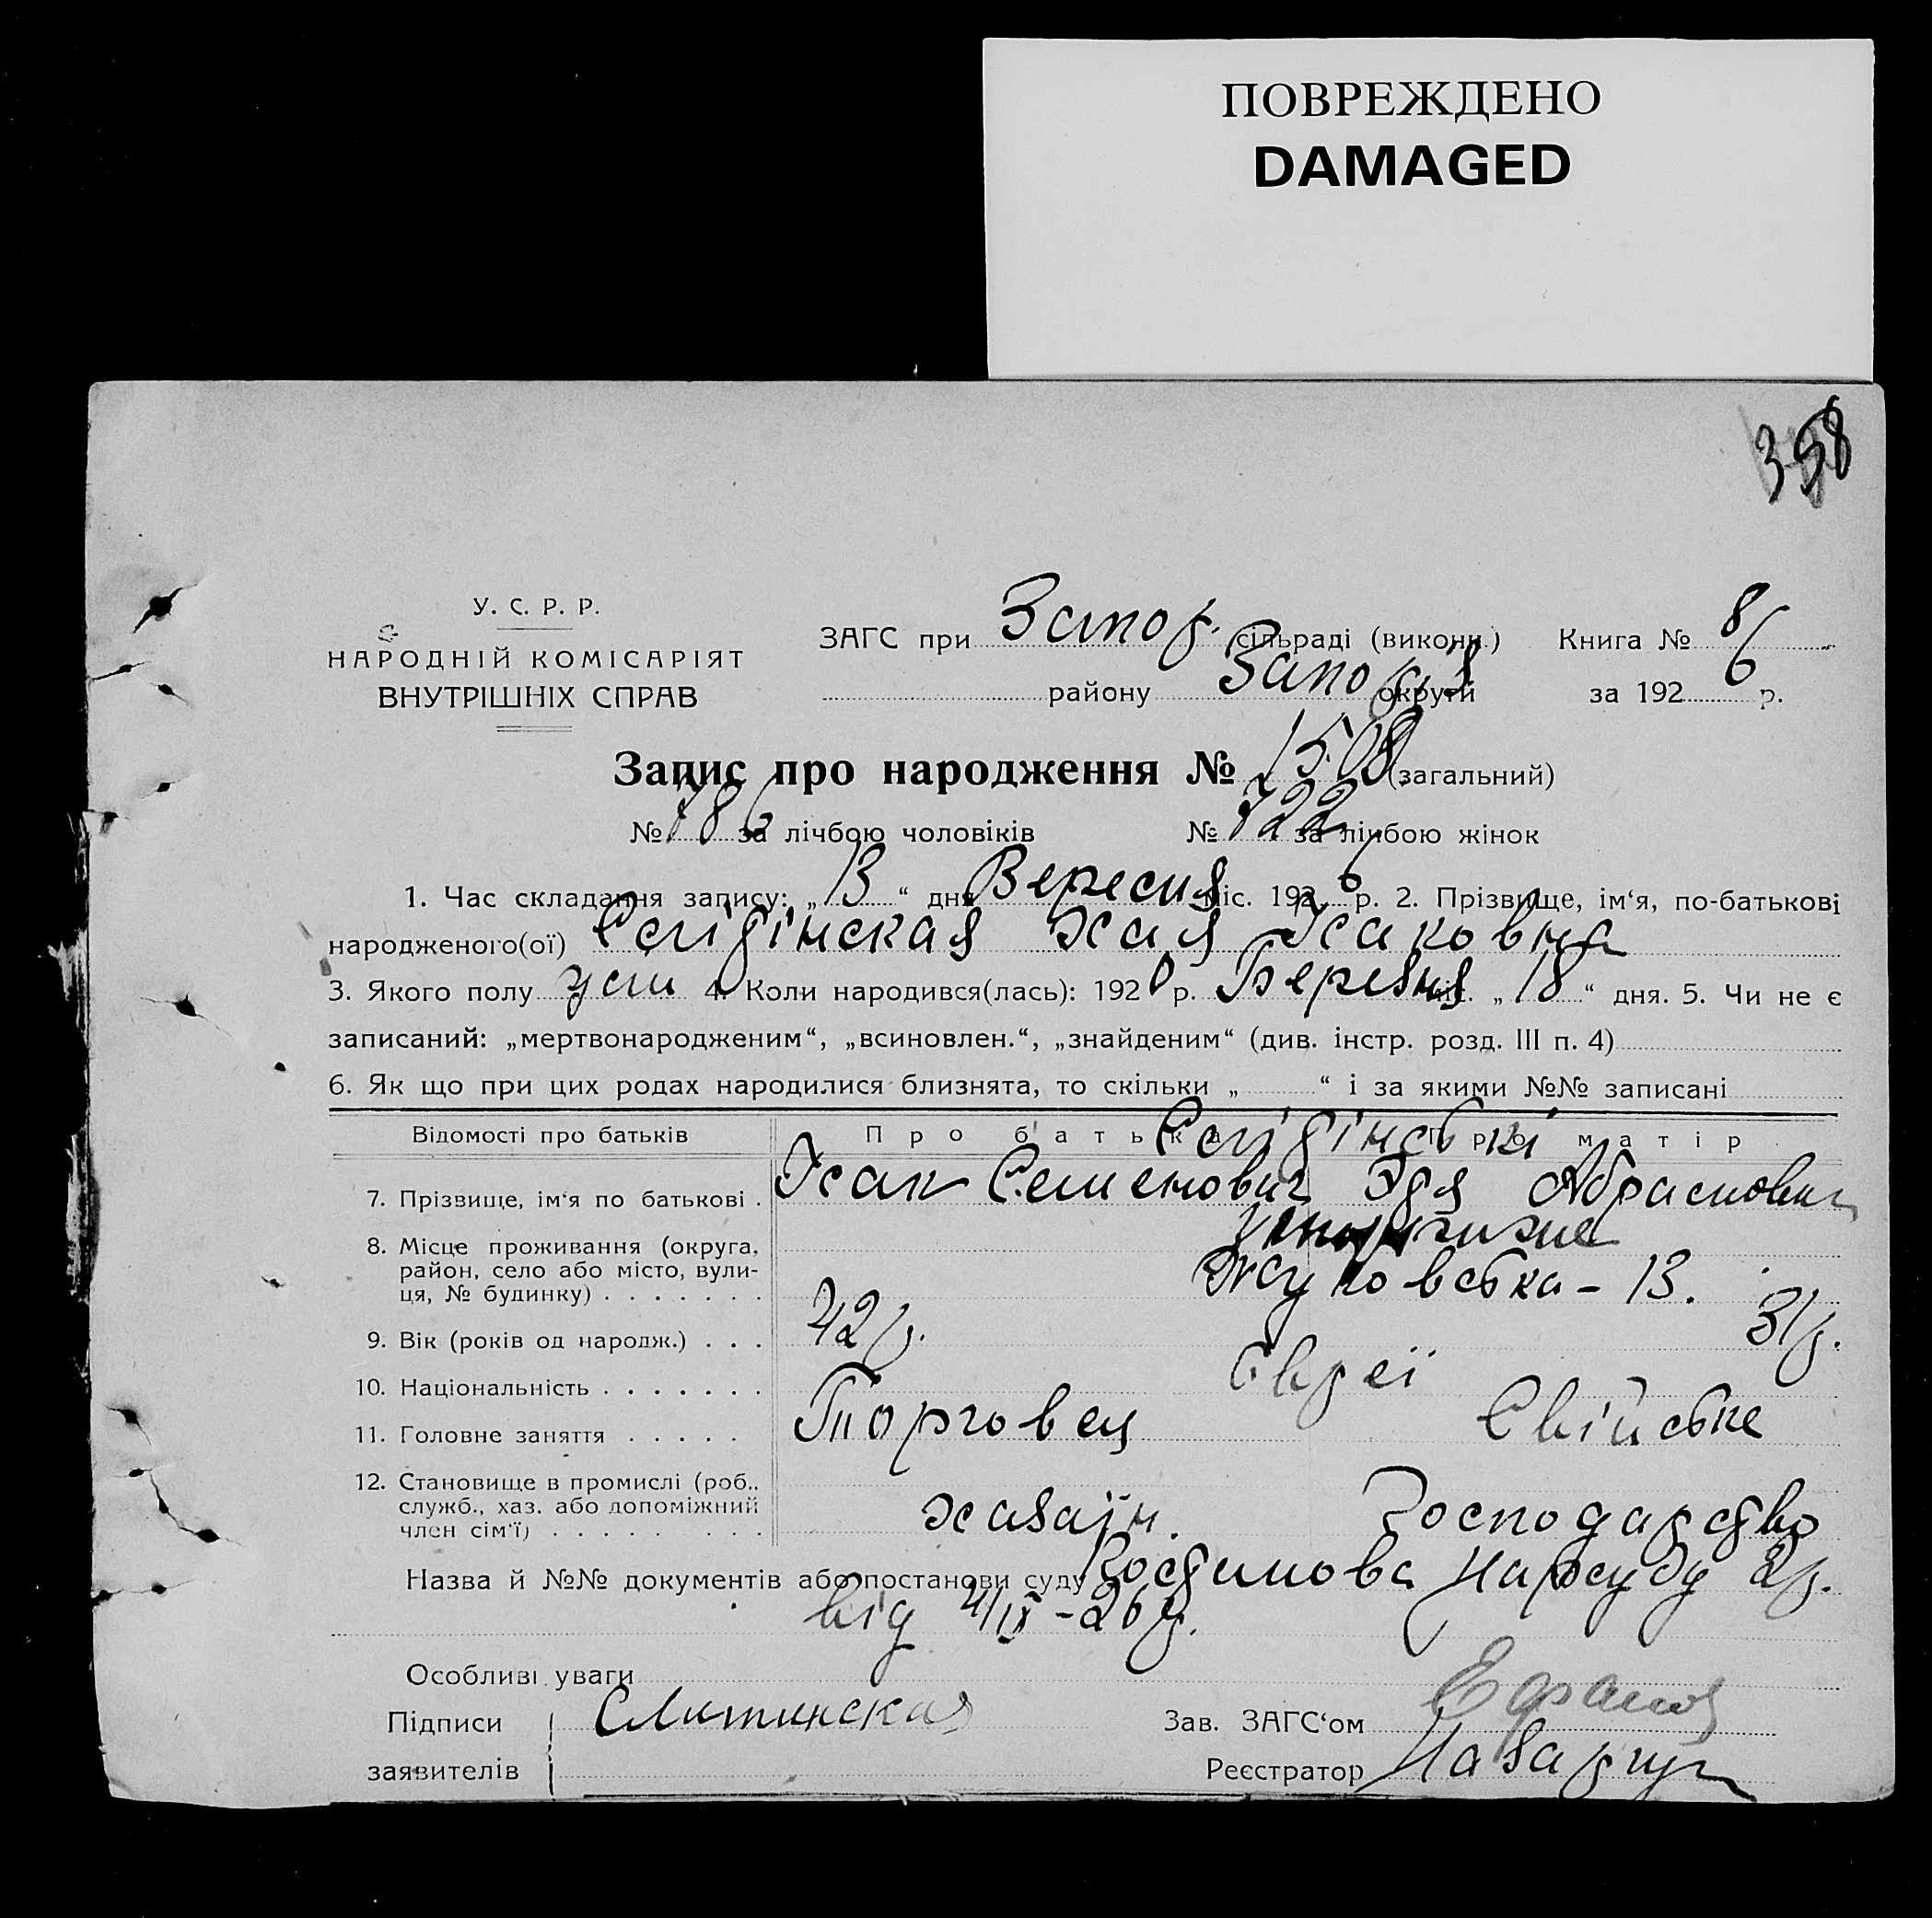 ПОВРЕЖДЕНО
DAMAGED
358
У. С. Р. Р.
НАРОДНІЙ КОМІСАРІЯТ
ВНУТРІШНІХ СПРАВ
ЗАГС при Запор. сільраді (викони.) Книга № 8
району Запор округи за 1926 р.
Запис про народження № 1508 (загальний)
№ 786 за лічбою чоловіків № 722 за лічбою жінок
1. Час складання запису: „13“ дня Вересня міс. 1926 р. 2. Прізвище, ім‘я, по-батькові
народженого(ої) Хая Ісаковна
3. Якого полу 4. Коли народився(лась): 1920 р. Березня міс. „18“ дня. 5. Чи не є
записаний: „мертвонародженим“, „всиновлен.“, „знайденим“ (див. інстр. розд. III п. 4)
6. Як що при цих родах народилися близнята, то скільки „ “ і за якими №№ записані
Відомості про батьків Про батька Про матір
7. Прізвище, ім‘я по батькові . Ісак Семенович Эдя Абрамовна
8. Місце проживання (округа, район, село або місто, вулиця, № будинку) . . . . . . .
Жуковська - 13.
9. Вік (років од народж.) . . . 42 р. 31 р.
10. Національність . . . . . . . Євреї
11. Головне заняття . . . . . Торговец Свійське
12. Становище в промислі (роб., служб., хаз. або допоміжний член сім‘ї) . . . . . . . . . хазаїн. Господарство
Назва й №№ документів або постанови суду Постанова Нарсуду 2 р.
від 4/IX - 26 р.
Особливі уваги
Підписи Зав. ЗАГС‘ом
заявителів Реєстратор